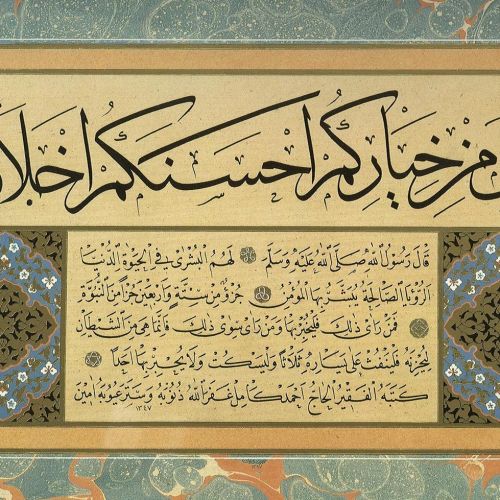 من خياركم احسنكم اخلا
قَالَ رَسُولُ اللهِ صَلَّى اللهُ عَلَيْهِ وَسَلَّمَ لَهُمُ الْبُشْرٰى فِي الْحَيٰوةِ الدُّنْيَا
اَلرُّؤْيَا الصَّالِحَةُ يُبَشَّرُ بِهَا الْمُؤْمِنُ جُزْؤٌ مِنْ سِتَّةٍ وَاَرْبَعِينَ جُزْأً مِنَ النُّبُوَّةِ
فَمَنْ رَاٰى ذٰلِكَ فَلْيُخْبِرْ بِهَا وَمَنْ رَاٰى سِوٰى ذٰلِكَ فَاِنَّمَا هِيَ مِنَ الشَّيْطَانِ
لِيُحْزِنَهُ فَلْيَنْفُثْ عَلٰى يَسَارِهِ ثَلَاثًا وَلْيَسْكُتْ وَلَا يُخْبِرْ بِهَا اَحَدًا
كَتَبَهُ الْفَقِيرُ الْحَاجُّ اَحْمَدْ كَامِلْ غَفَرَ اللهُ ذُنُوبَهُ وَسَتَرَ عُيُوبَهُ اٰمِينَ
١٣٤٧